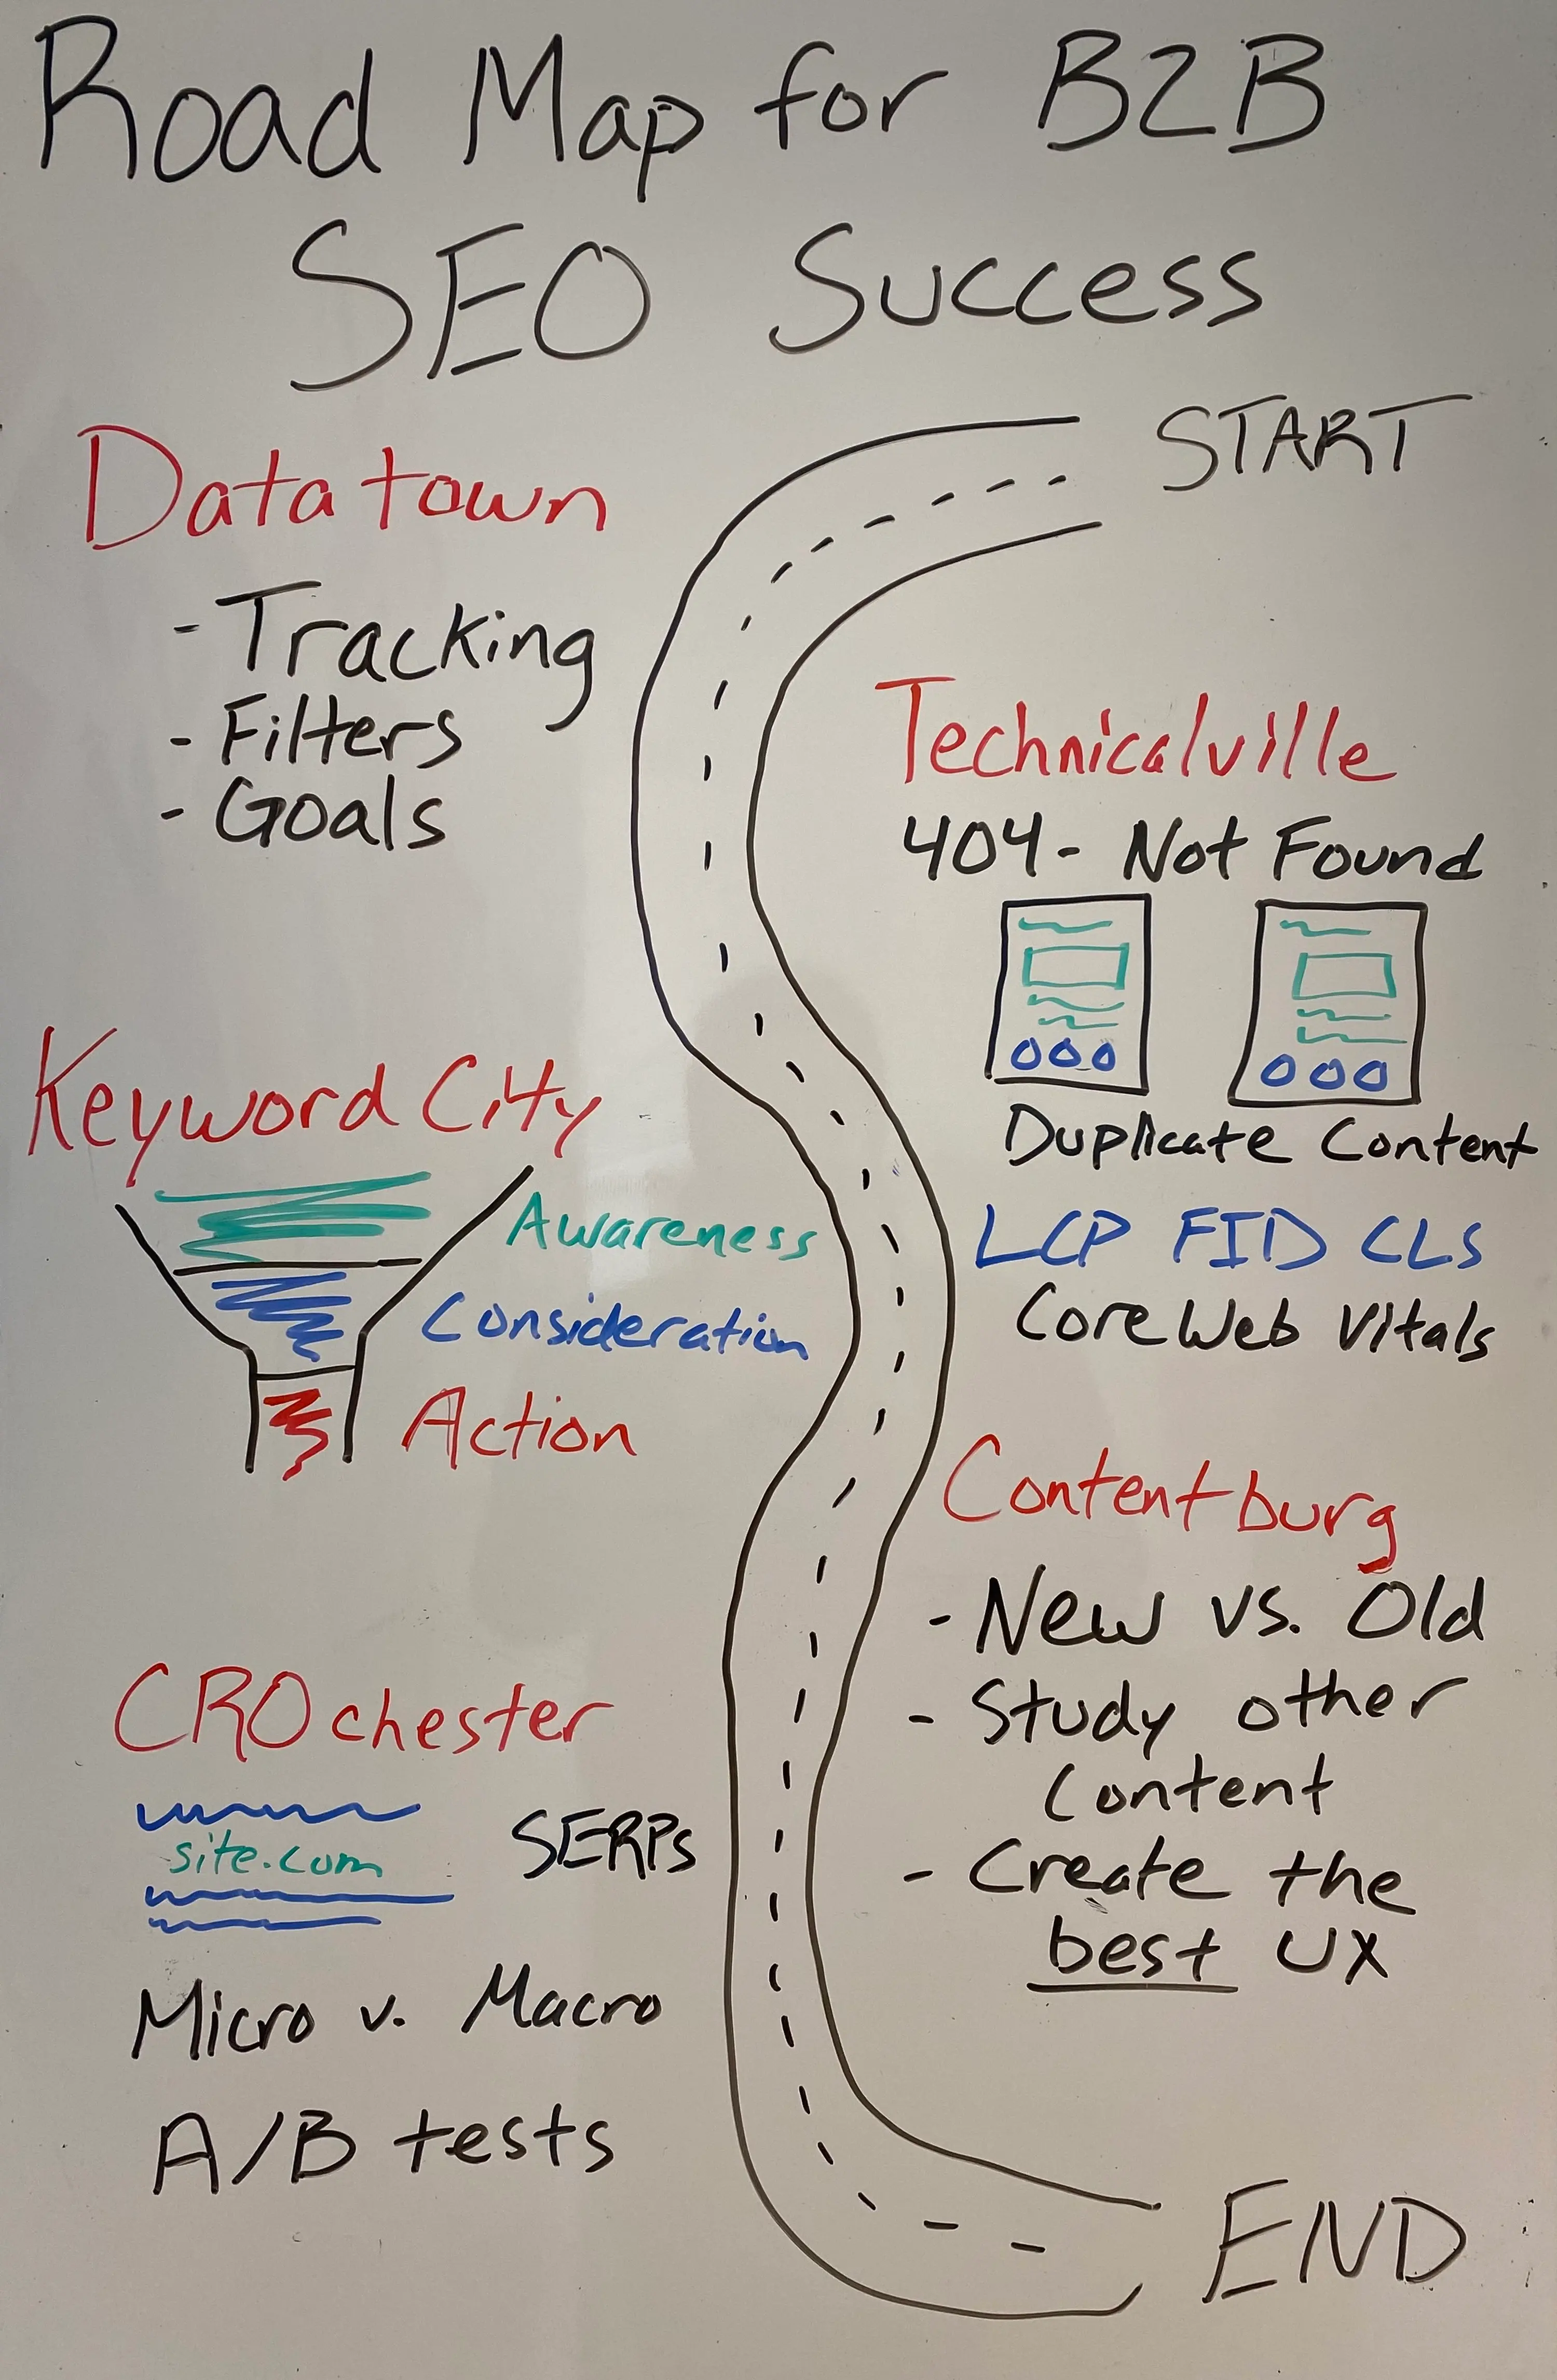 Road Map for B2B
SEO Success
START
Datatown
- Tracking
- Filters
- Goals
Technicalville
404- Not Found
Duplicate Content
LCP FID CLS
Core Web Vitals
Keyword City
Awareness
Consideration
Action
Contentburg
- New vs. Old
- Study other
Content
- Create the
best UX
CROchester
site.com
SERPs
Micro v. Macro
A/B tests
END